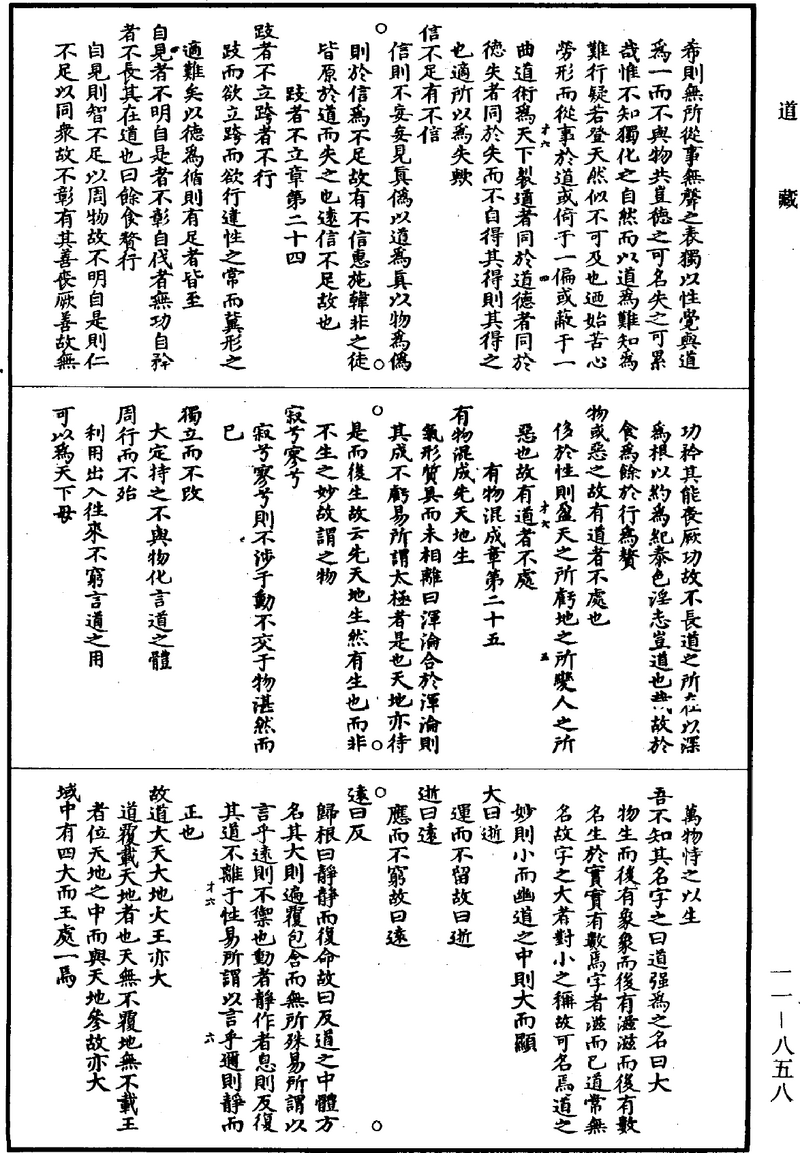 道藏
希則無所從事無聲之表獨以性覺與道
為一而不與物共豈德之可名失之可累
哉惟不知獨化之自然而以道為難知為
難行疑若登天然似不可及也迺始苦心
勞形而從事於道或倚于一偏或蔽于一
曲道術為天下裂道者同於道德者同於
德失者同於失而不自得其得則其得之
也適所以為失歟
信不足有不信
信則不妄妄見真偽以道為真以物為偽
則於信為不足故有不信惠施韓非之徒
皆原於道而失之也遠信不足故也
跂者不立章第二十四
跂者不立跨者不行
跂而欲立跨而欲行違性之常而冀形之
適難矣以德為循則有足者皆至
自見者不明自是者不彰自伐者無功自矜
者不長其在道也曰餘食贅行
自見則智不足以周物故不明自是則仁
不足以同衆故不彰有其善喪厥善故無
功矜其能喪厥功故不長道之所在以深
為根以約為紀泰色淫志豈道也哉故於
食為餘於行為贅
物或惡之故有道者不處也
侈於性則盈天之所虧地之所變人之所
惡也故有道者不處
有物混成章第二十五
有物混成先天地生
氣形質具而未相離曰渾淪合於渾淪則
其成不虧易所謂太極者是也天地亦待
是而後生故云先天地生然有生也而非
不生之妙故謂之物
寂兮寥兮
寂兮寥兮則不涉于動不交于物湛然而
已
獨立而不改
大定持之不與物化言道之體
周行而不殆
利用出入往來不窮言道之用
可以為天下母
萬物恃之以生
吾不知其名字之曰道强為之名曰大
物生而後有象象而後有滋滋而後有數
名生於實實有數焉字者滋而已道常無
名故字之大者對小之稱故可名焉道之
妙則小而幽道之中則大而顯
大曰逝
運而不留故曰逝
逝曰遠
應而不窮故曰遠
遠曰反
歸根曰靜靜而復命故曰反道之中體方
名其大則遍覆包含而無所殊易所謂以
言乎遠則不禦也動者靜作者息則反復
其道不離于性易所謂以言乎邇則靜而
正也
故道大天大地大王亦大
道覆載天地者也天無不覆地無不載王
者位天地之中而與天地參故亦大
域中有四大而王處一焉
一一—八五八